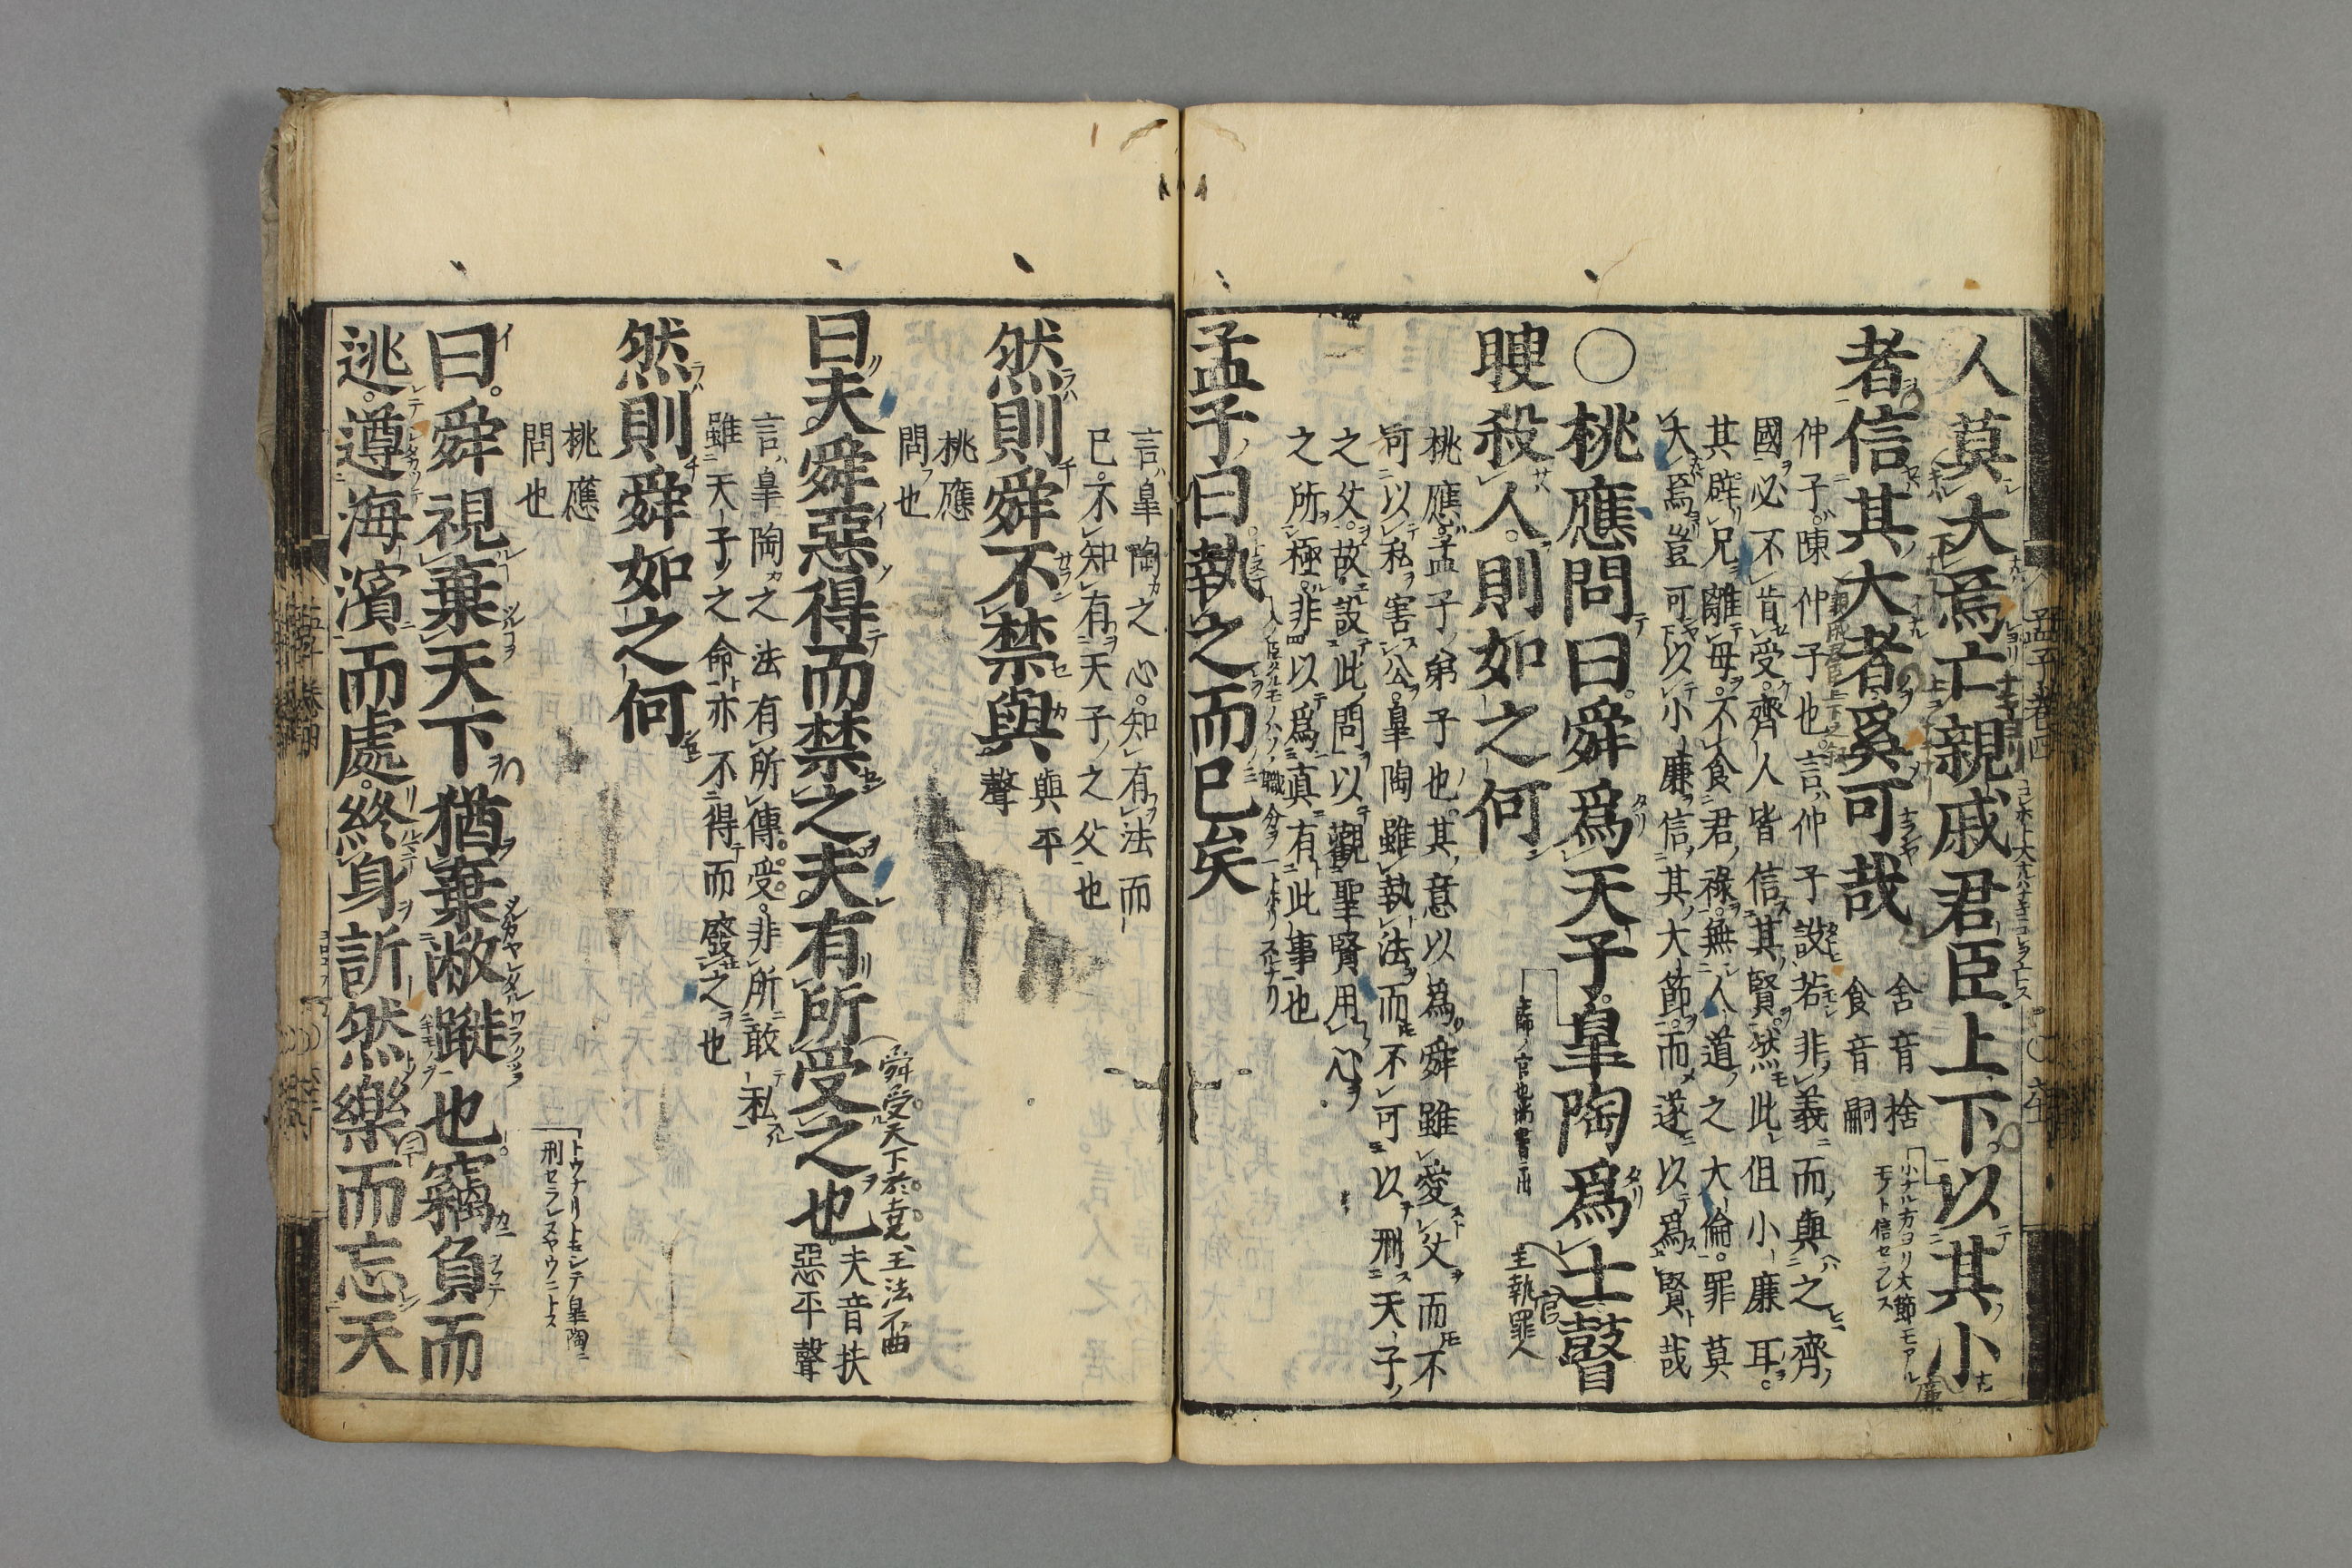 人莫大焉亡親戚君臣上下以其小
者信其大者奚可哉
舍音捨
食音嗣
仲子陳仲子也言仲子設若非義而與之齊
國必不肯受齊人皆信其賢然此但小廉耳
其辟兄離母不食君祿無人道之大倫罪莫
大焉豈可以小廉信其大節而遂以爲賢哉
〇桃應問曰舜爲天子皐陶爲士瞽
瞍殺人則如之何
桃應孟子弟子也其意以為舜雖愛父而不
可以私害公皐陶雖執法而不可以刑天子
之父故設此問以觀聖賢用心
之所極非以爲真有此事也
孟子曰執之而已矣
言皐陶之心知有法而
已不知有天子之父也
然則舜不禁與
與平
聲
桃應
問也
曰夫舜惡得而禁之夫有所受之也
夫音扶
惡平聲
言皐陶之法有所傳受非所敢私
雖天子之命亦不得而廢之也
然則舜如之何
桃應
問也
曰舜視棄天下猶棄敝蹝也竊負而
逃遵海濱而處終身訢然樂而忘天
孟子卷四
主執罪人
舜受天下於堯王法不曲